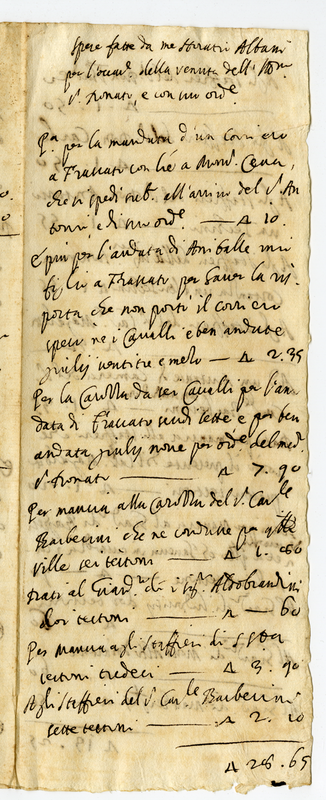 Spese fatte da me Horatio Albani
per l'occas.e della venuta dell'Ill.mo
S.r Donato, e con suo ord.e
P.a per la mandata d'un Corriero
a Frascati con l.re a Mons.r Ceva,
che si spedì sub.o all'arrivo del S.r An
tonio, e di suo ord.e — ∆ 10
E più per l'andata di Anniballe mio
figlio a Frascati per haver la ris
posta che non portò il corriero
spesi ne i Cavalli e ben andute
giulij ventitre e mezo — ∆ 2.35
Per la Carozza da sei Cavalli per l'an
data di Frascati scudi sette e per ben
andata giulij nove per ord.e del med.o
S.r Donato — ∆ 7.90
Per mancia alla Carozza del S.r Car.le
Barberini che ne condusse per q.lle
ville sei testoni — ∆ 1.80
Dati al Guard.a di i SS.ri Aldobrandini
doi testoni — ∆ — 60
Per mancia agli staffieri di S. S.tà
testoni tredeci — ∆ 3.90
Agli staffieri del S.r Car.le Barberini
sette testoni — ∆ 2.10
∆ 28.65